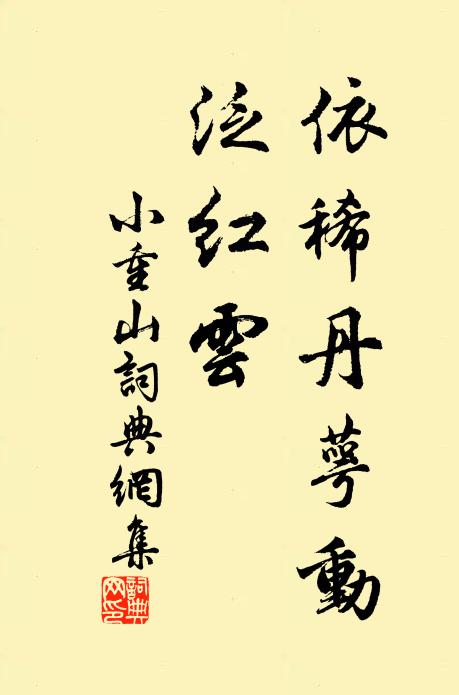 依稀丹萼動
泛紅雲
小重山詞典網集
詞典網印